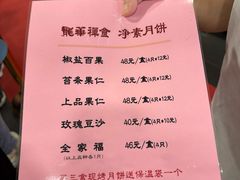 龍華禪食 净素月饼
椒盐百果 48元/盒(4只*12元)
苔条果仁 48元/盒(4只*12元)
上品果仁 48元/盒(4只*12元)
玫瑰豆沙 40元/盒(4只*10元)
全家福 46元/盒(4只)
(以上品种各1只)
三盒现烤月饼送保温袋一个